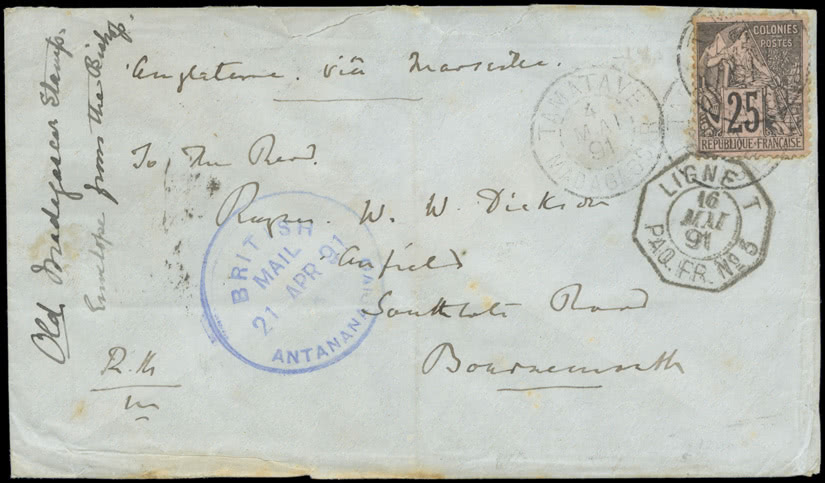 Old Madagascar Stamp.
Envelope from the Bishop.
Angleterre. viâ Marseille.
TAMATAVE
4
MAI
91
MADAGASCAR
COLONIES
POSTES
25
REPUBLIQUE FRANÇAISE
LIGNE T
16
MAI
91
PAQ. FR. Nº 5
To The Revd.
W. W. Dickson
Southcote Road
Bournemouth
BRITISH
MAIL
21 APR 91
ANTANANARIVO